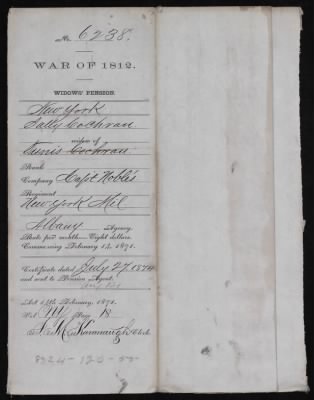 No. 6238.
WAR OF 1812.
WIDOWS' PENSION.
New York
Sally Cochran
widow of
Tunis Cochran
Rank
Company Capt Noble's
Regiment
New York Mil
Albany Agency.
Rate per month—Eight dollars.
Commencing February 14, 1871.
Certificate dated July 27, 187
and sent to Pension Agent.
Act 14th February, 1871.
Vol. Page 18
Clerk.